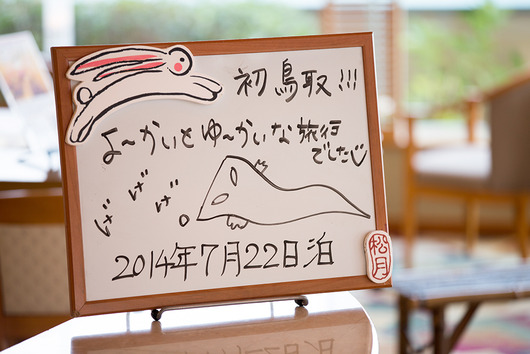 初鳥取!!!
よ〜かいとゆ〜かいな旅行
でした
げげげ
2014年7月22日泊
松月